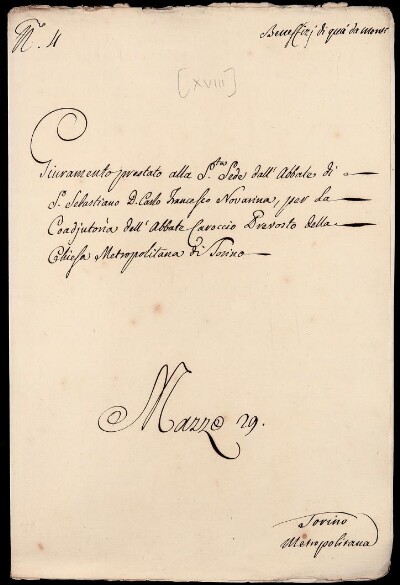 N.º 4
Beneffizj di quà da monti
[XVIII]
Giuramento prestato alla S.ta Sede dall'Abbate di
S. Sebastiano D. Carlo Francesco Novarina, per la
Coadjutoria dell'Abbate Caroccio Prevosto della
Chiesa Metropolitana di Torino
Mazzo 29.
Torino
Metropolitana